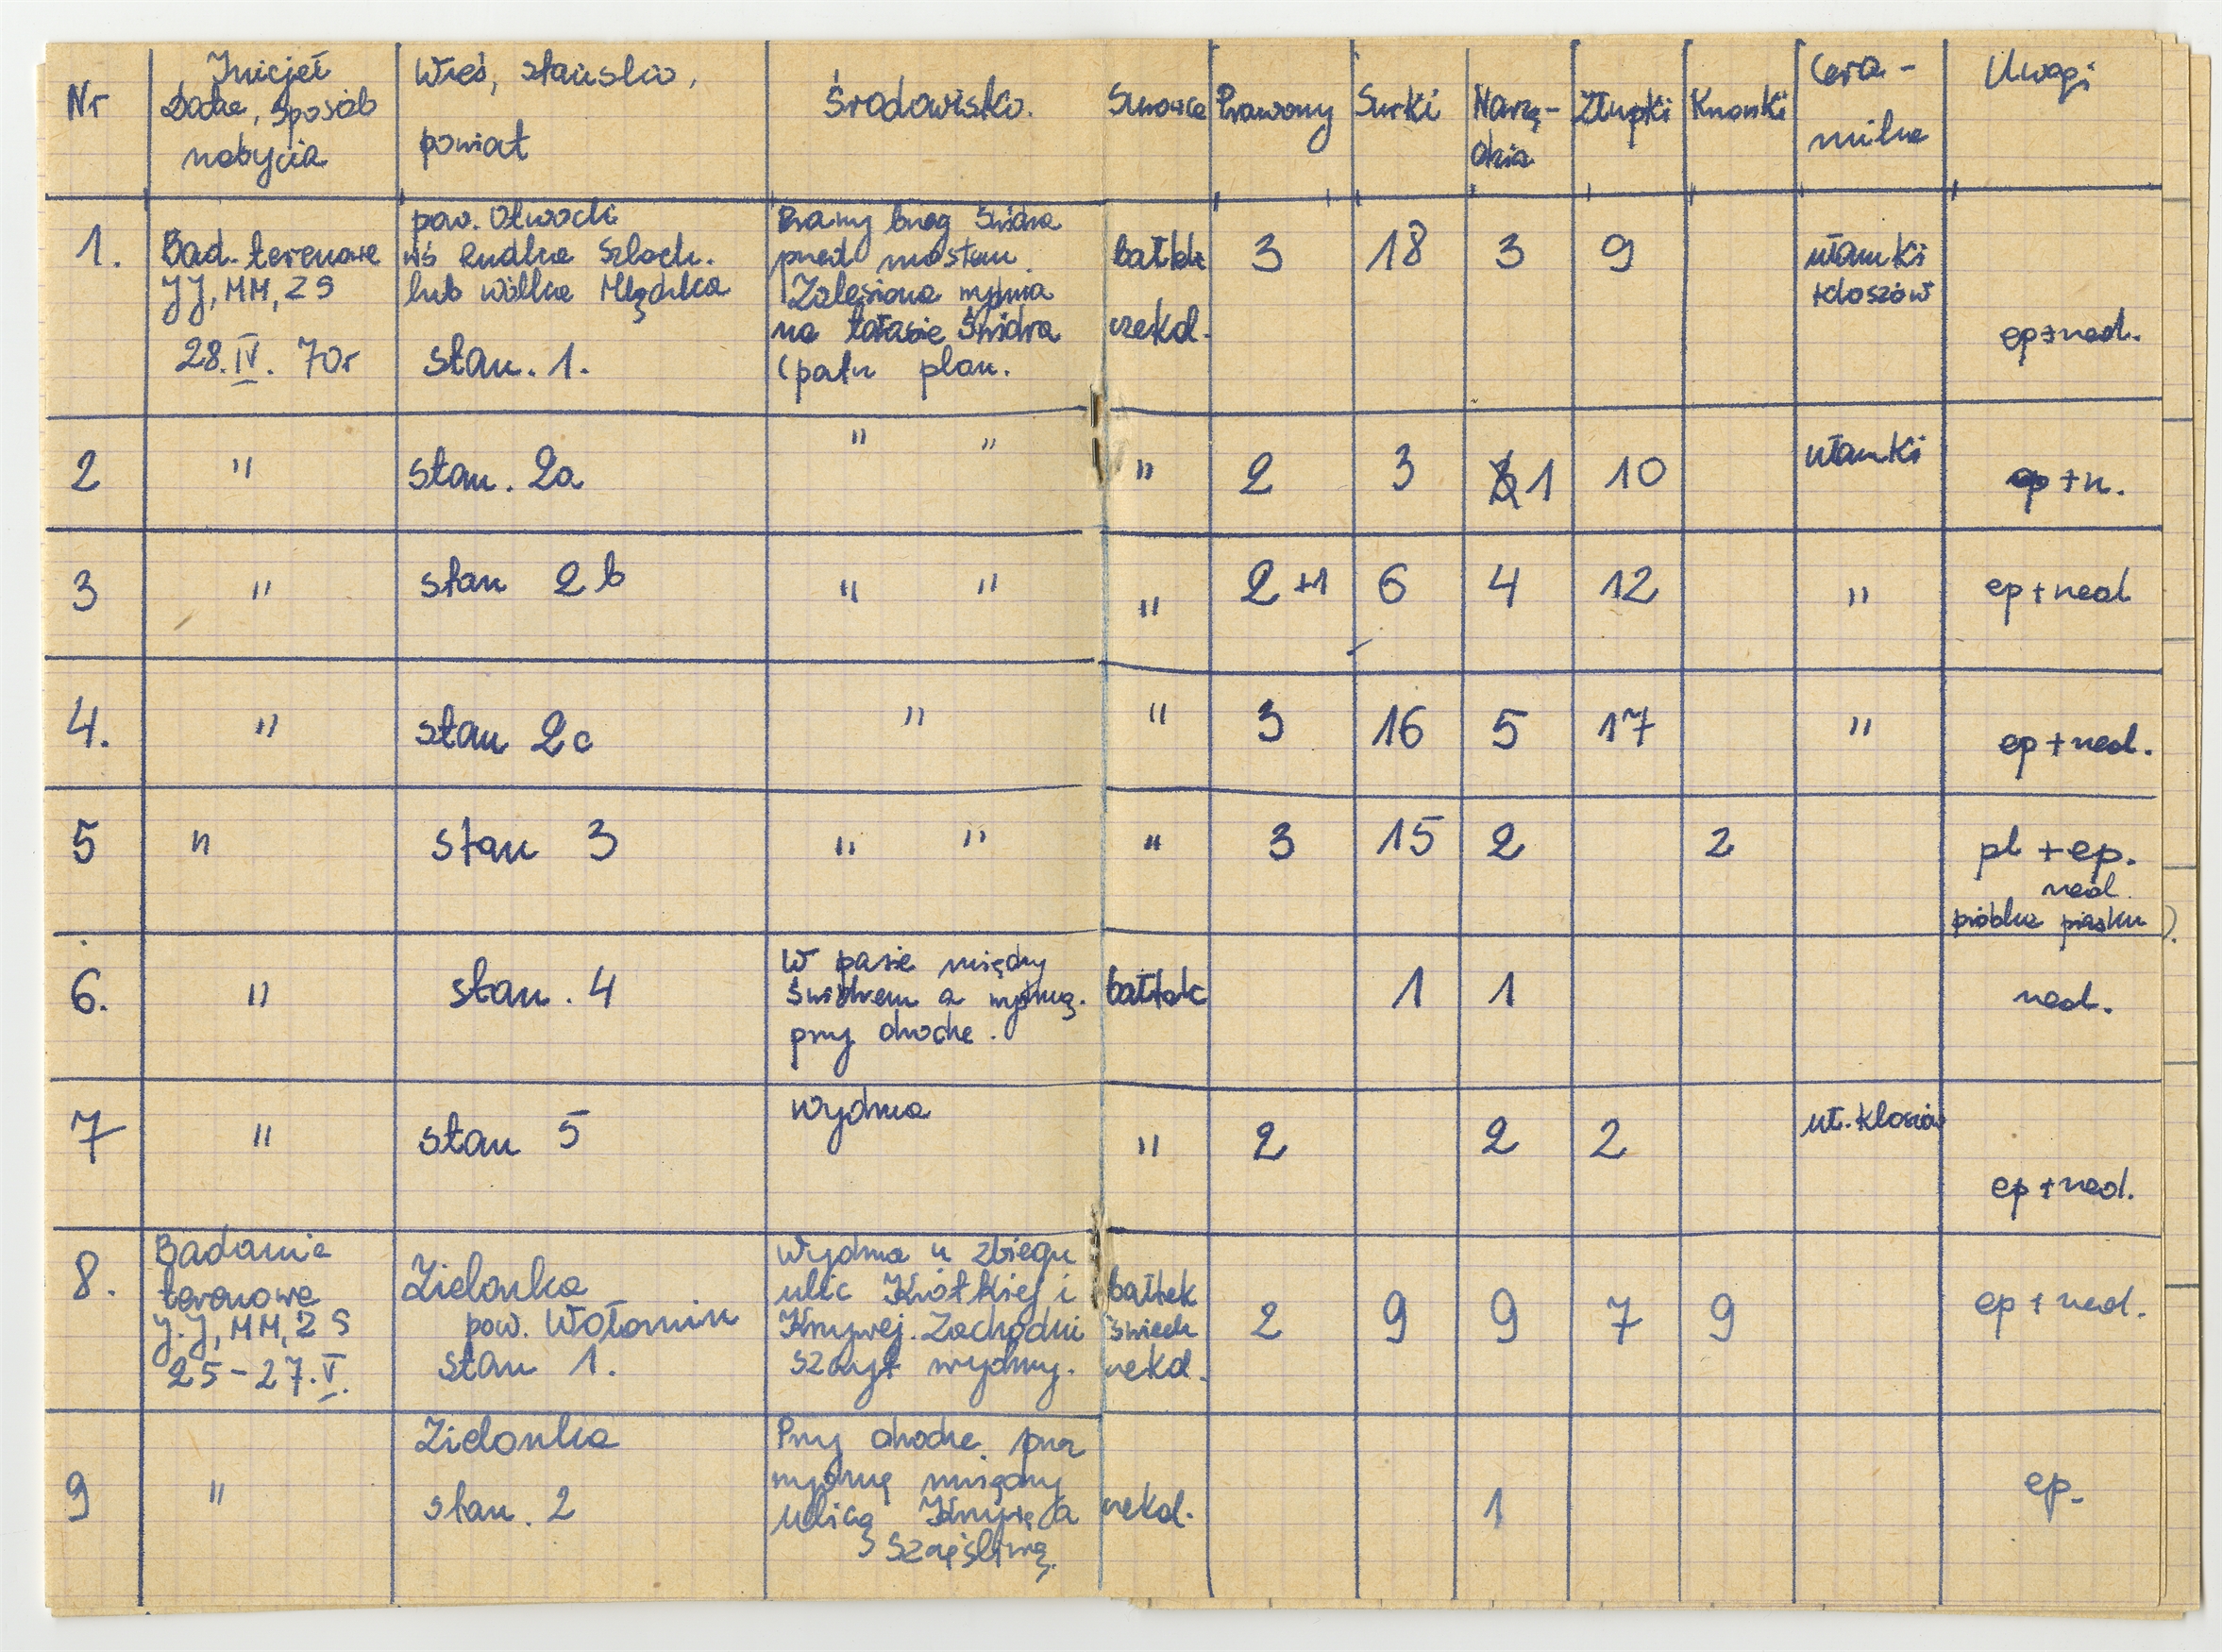 Nr
Inicjał
Data, sposób
nabycia
Wieś, stanisko,
powiat
Środowisko.
Surowce
Prawony
Surki
Narzę-
dzia
Złupki
Knowki
Cera-
mika
Uwagi
1.
Bad. terenowe
JJ, MM, ZS
28.IV. 70r
pow. Otwock
wś Rudka Szlach.
lub Wólka Mlądzka
stan. 1.
Prawy brzeg Świdra
przed mostem.
Zalesiona wydma
na tarasie Świdra
(patrz plan.
bałtek
czekol.
3
18
3
9
ułamki
+kloszów
ep+ned.
2
"
stan. 2a
" "
"
2
3
1
10
ułamki
ep +n.
3
"
stan 2b
" "
"
2 +1
6
4
12
"
ep + ned
4.
"
stan 2c
"
"
3
16
5
17
"
ep + ned.
5
"
stan 3
" "
"
3
15
2
2
pl + ep.
ned.
próbka piasku
6.
"
stan. 4
W pasie między
Świdrem a wydmą.
przy drodze.
bałtek
1
1
ned.
7
"
stan 5
wydma
"
2
2
2
uł. kloszów
ep + ned.
8.
Badania
terenowe
J.J, MM, ZS
25-27.V.
Zielonka
pow. Wołomin
stan 1.
Wydma u zbiegu
ulic Krótkiej i
Krzywej. Zachodni
szczyt wydmy.
bałtek
świech
czekol.
2
9
9
7
9
ep + ned.
9
"
Zielonka
stan. 2
Przy drodze przez
wydmę między
ulicą Krzywą a
Szczęśliwą.
czekol.
1
ep.